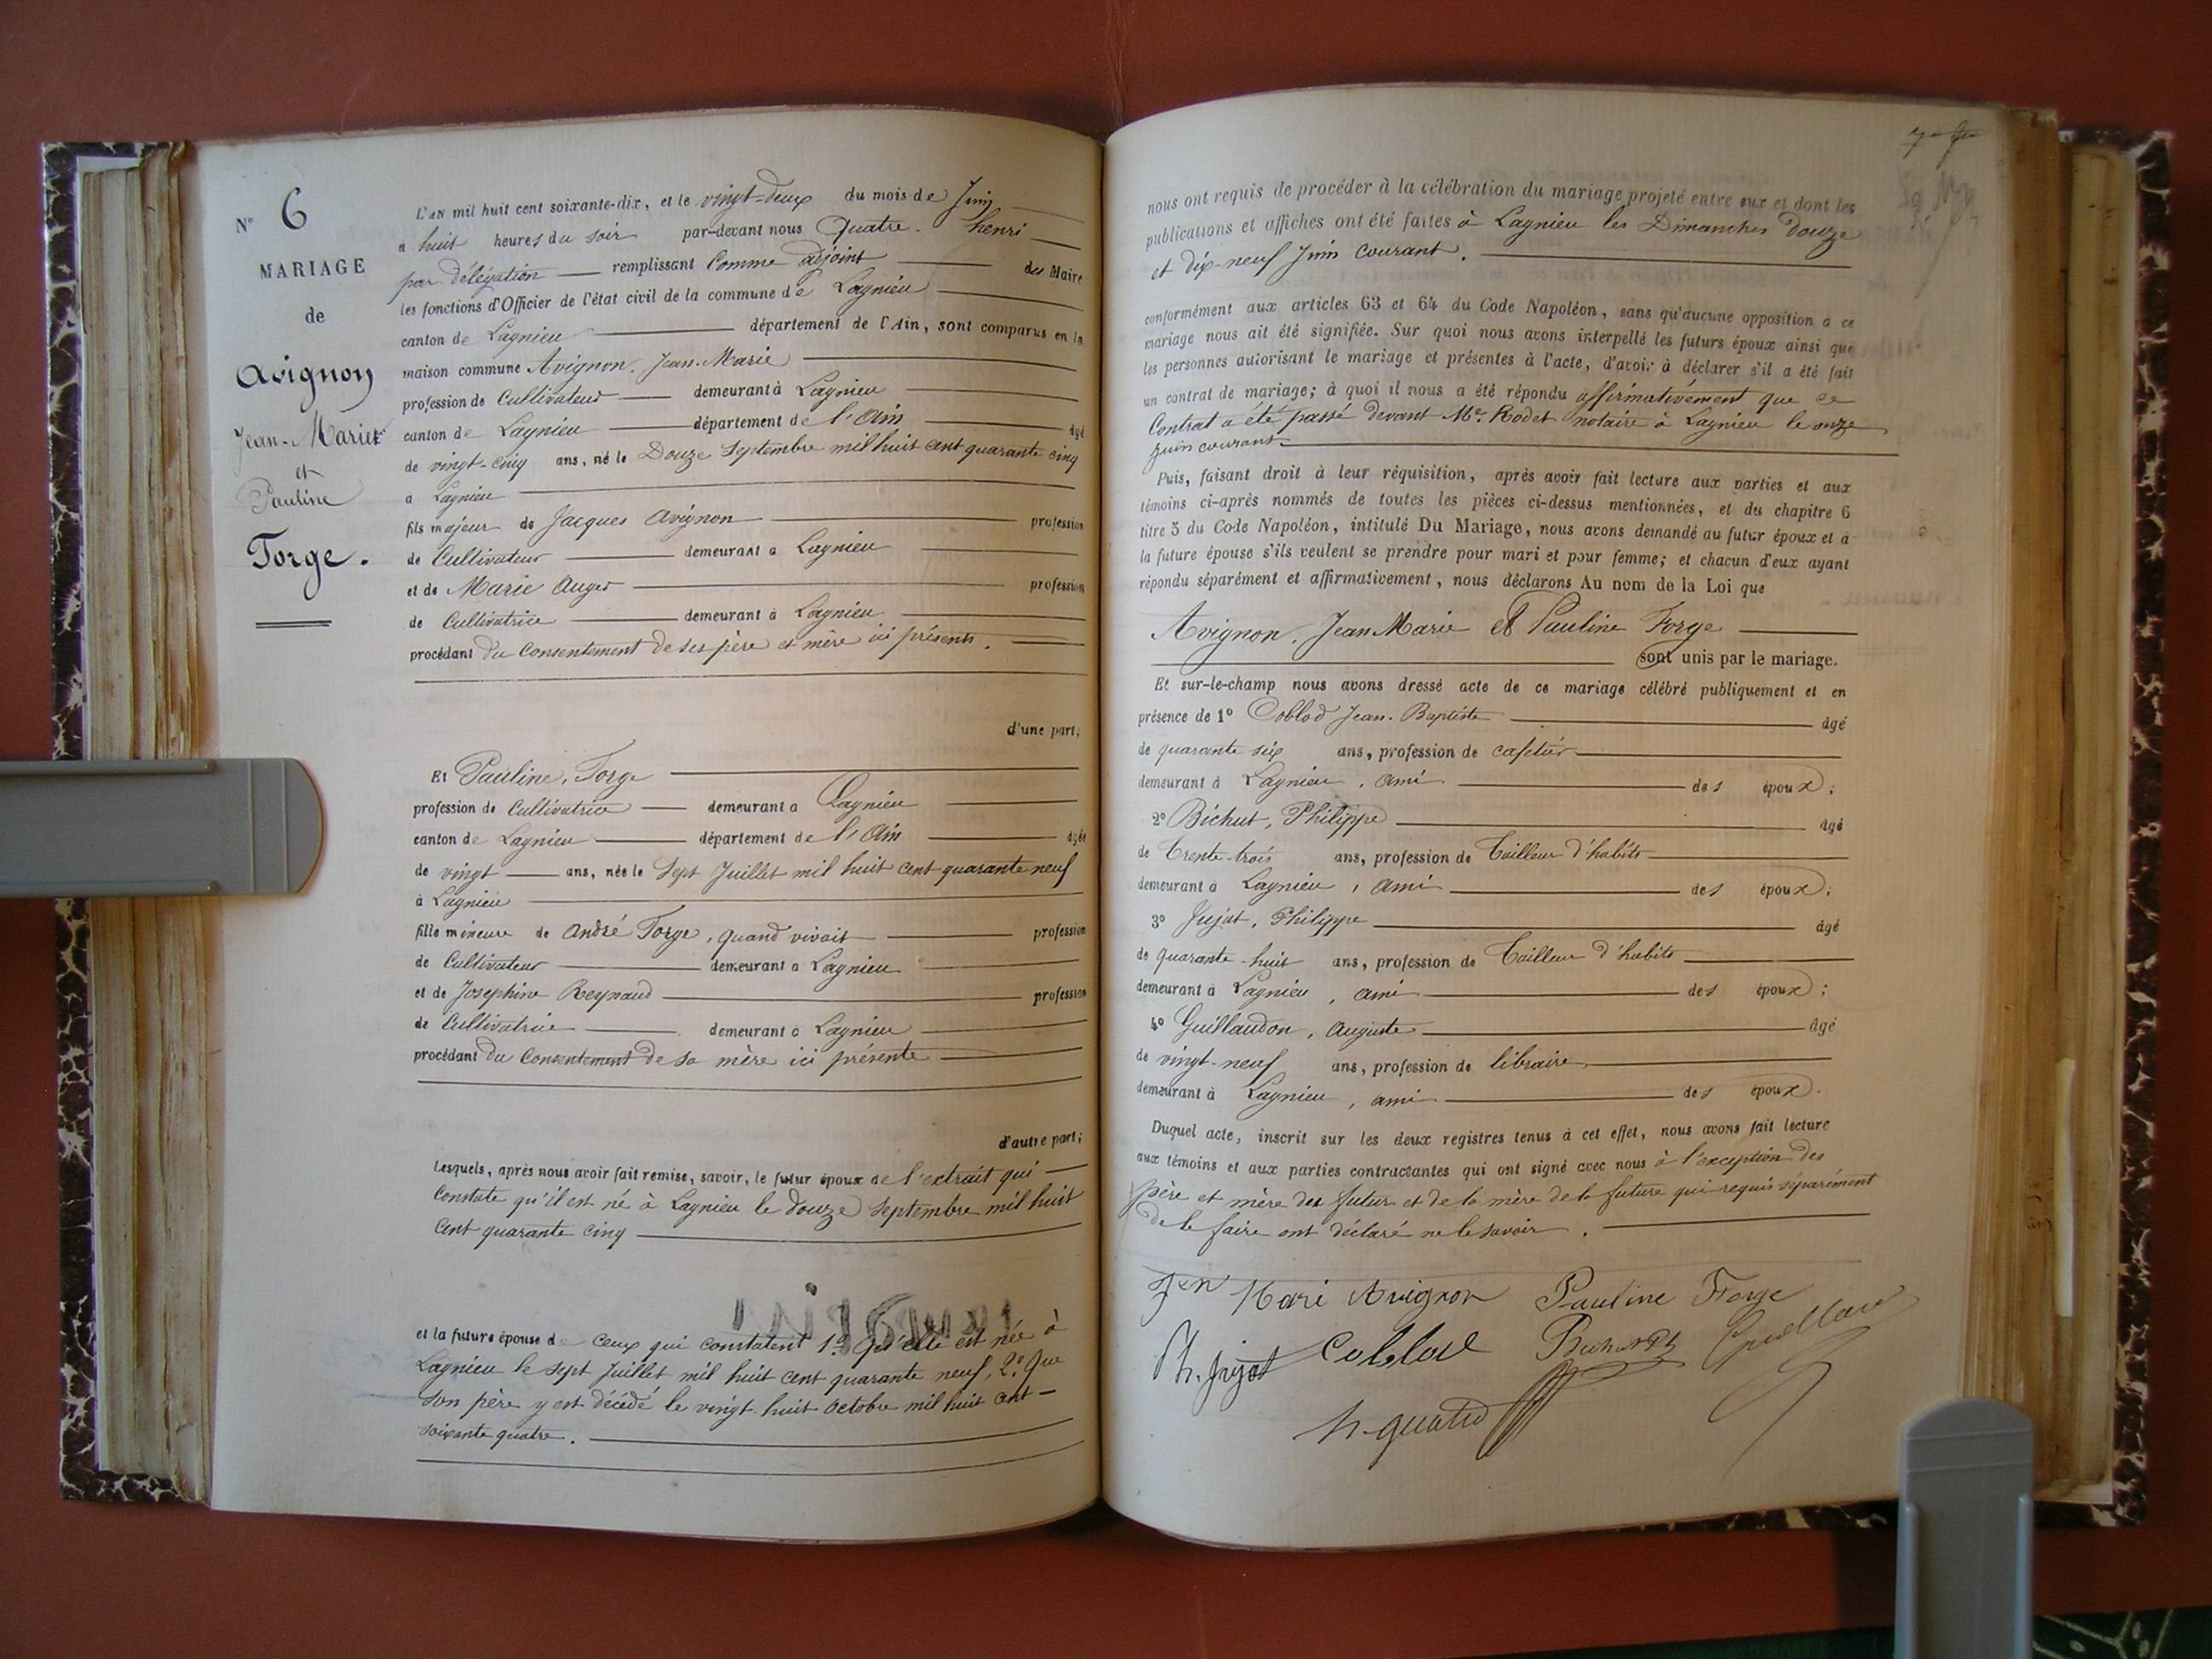 N° 6
MARIAGE
de
Avignon
Jean-Marie
et
Pauline
Forge.
L'AN mil huit cent soixante-dix, et le vingt-deux du mois de Juin
a huit heures du soir par-devant nous Quatre. henri
par délégation remplissant Comme adjoint du Maire
les fonctions d'Officier de l'état civil de la commune de Lagnieu
canton de Lagnieu département de l'Ain, sont comparus en la
maison commune Avignon, Jean-Marie
profession de Cultivateur demeurant à Lagnieu
canton de Lagnieu département de l'Ain âgé
de vingt-cinq ans, né le Douze Septembre mil huit cent quarante cinq
à Lagnieu
fils majeur de Jacques Avignon profession
de Cultivateur demeurant a Lagnieu
et de Marie Auger profession
de Cultivatrice demeurant à Lagnieu
procédant du Consentement de ses père et mère ici présents.
d'une part;
Et Pauline, Forge
profession de Cultivatrice demeurant a Lagnieu
canton de Lagnieu département de l'Ain âgée
de vingt ans, née le Sept Juillet mil huit cent quarante neuf
à Lagnieu
fille mineure de André Forge, quand vivait profession
de Cultivateur demeurant a Lagnieu
et de Josephine Reynaud profession
de Cultivatrice demeurant à Lagnieu
procédant du Consentement de sa mère ici présente
d'autre part;
Lesquels, après nous avoir fait remise, savoir, le futur époux de l'extrait qui
Constate qu'il est né à Lagnieu le douze Septembre mil huit
Cent quarante cinq
et la future épouse de ceux qui constatent 1° Qu'elle est née à
Lagnieu le sept Juillet mil huit cent quarante neuf, 2° Que
son père y est décédé le vingt huit octobre mil huit cent
soixante quatre.
nous ont requis de procéder à la célébration du mariage projeté entre eux et dont les
publications et affiches ont été faites à Lagnieu les Dimanches douze
et dix-neuf Juin courant.
conformément aux articles 63 et 64 du Code Napoléon, sans qu'aucune opposition à ce
mariage nous ait été signifiée. Sur quoi nous avons interpellé les futurs époux ainsi que
les personnes autorisant le mariage et présentes à l'acte, d'avoir à déclarer s'il a été fait
un contrat de mariage; à quoi il nous a été répondu affirmativement que ce
Contrat a été passé devant Me. Rodet notaire à Lagnieu le onze
Juin courant
Puis, faisant droit à leur réquisition, après avoir fait lecture aux parties et aux
témoins ci-après nommés de toutes les pièces ci-dessus mentionnées, et du chapitre 6
titre 5 du Code Napoléon, intitulé Du Mariage, nous avons demandé au futur époux et à
la future épouse s'ils veulent se prendre pour mari et pour femme; et chacun d'eux ayant
répondu séparément et affirmativement, nous déclarons Au nom de la Loi que
Avignon, Jean Marie et Pauline Forge
sont unis par le mariage.
Et sur-le-champ nous avons dressé acte de ce mariage célébré publiquement et en
présence de 1° Coblod Jean-Baptiste âgé
de quarante six ans, profession de cafetier
demeurant à Lagnieu, ami des époux;
2° Bichut, Philippe âgé
de trente-trois ans, profession de Tailleur d'habits
demeurant à Lagnieu, ami des époux;
3° Jujat, Philippe âgé
de quarante-huit ans, profession de Tailleur d'habits
demeurant à Lagnieu, ami des époux;
4° Guillaudon, Auguste âgé
de vingt-neuf ans, profession de libraire
demeurant à Lagnieu, ami des époux.
Duquel acte, inscrit sur les deux registres tenus à cet effet, nous avons fait lecture
aux témoins et aux parties contractantes qui ont signé avec nous à l'exception des
père et mère du futur et de la mère de la future qui requis séparément
de le faire ont déclaré ne le savoir.
Jen Mari Avignon Pauline Forge
Ph. Jujat Coblod
h. quatre